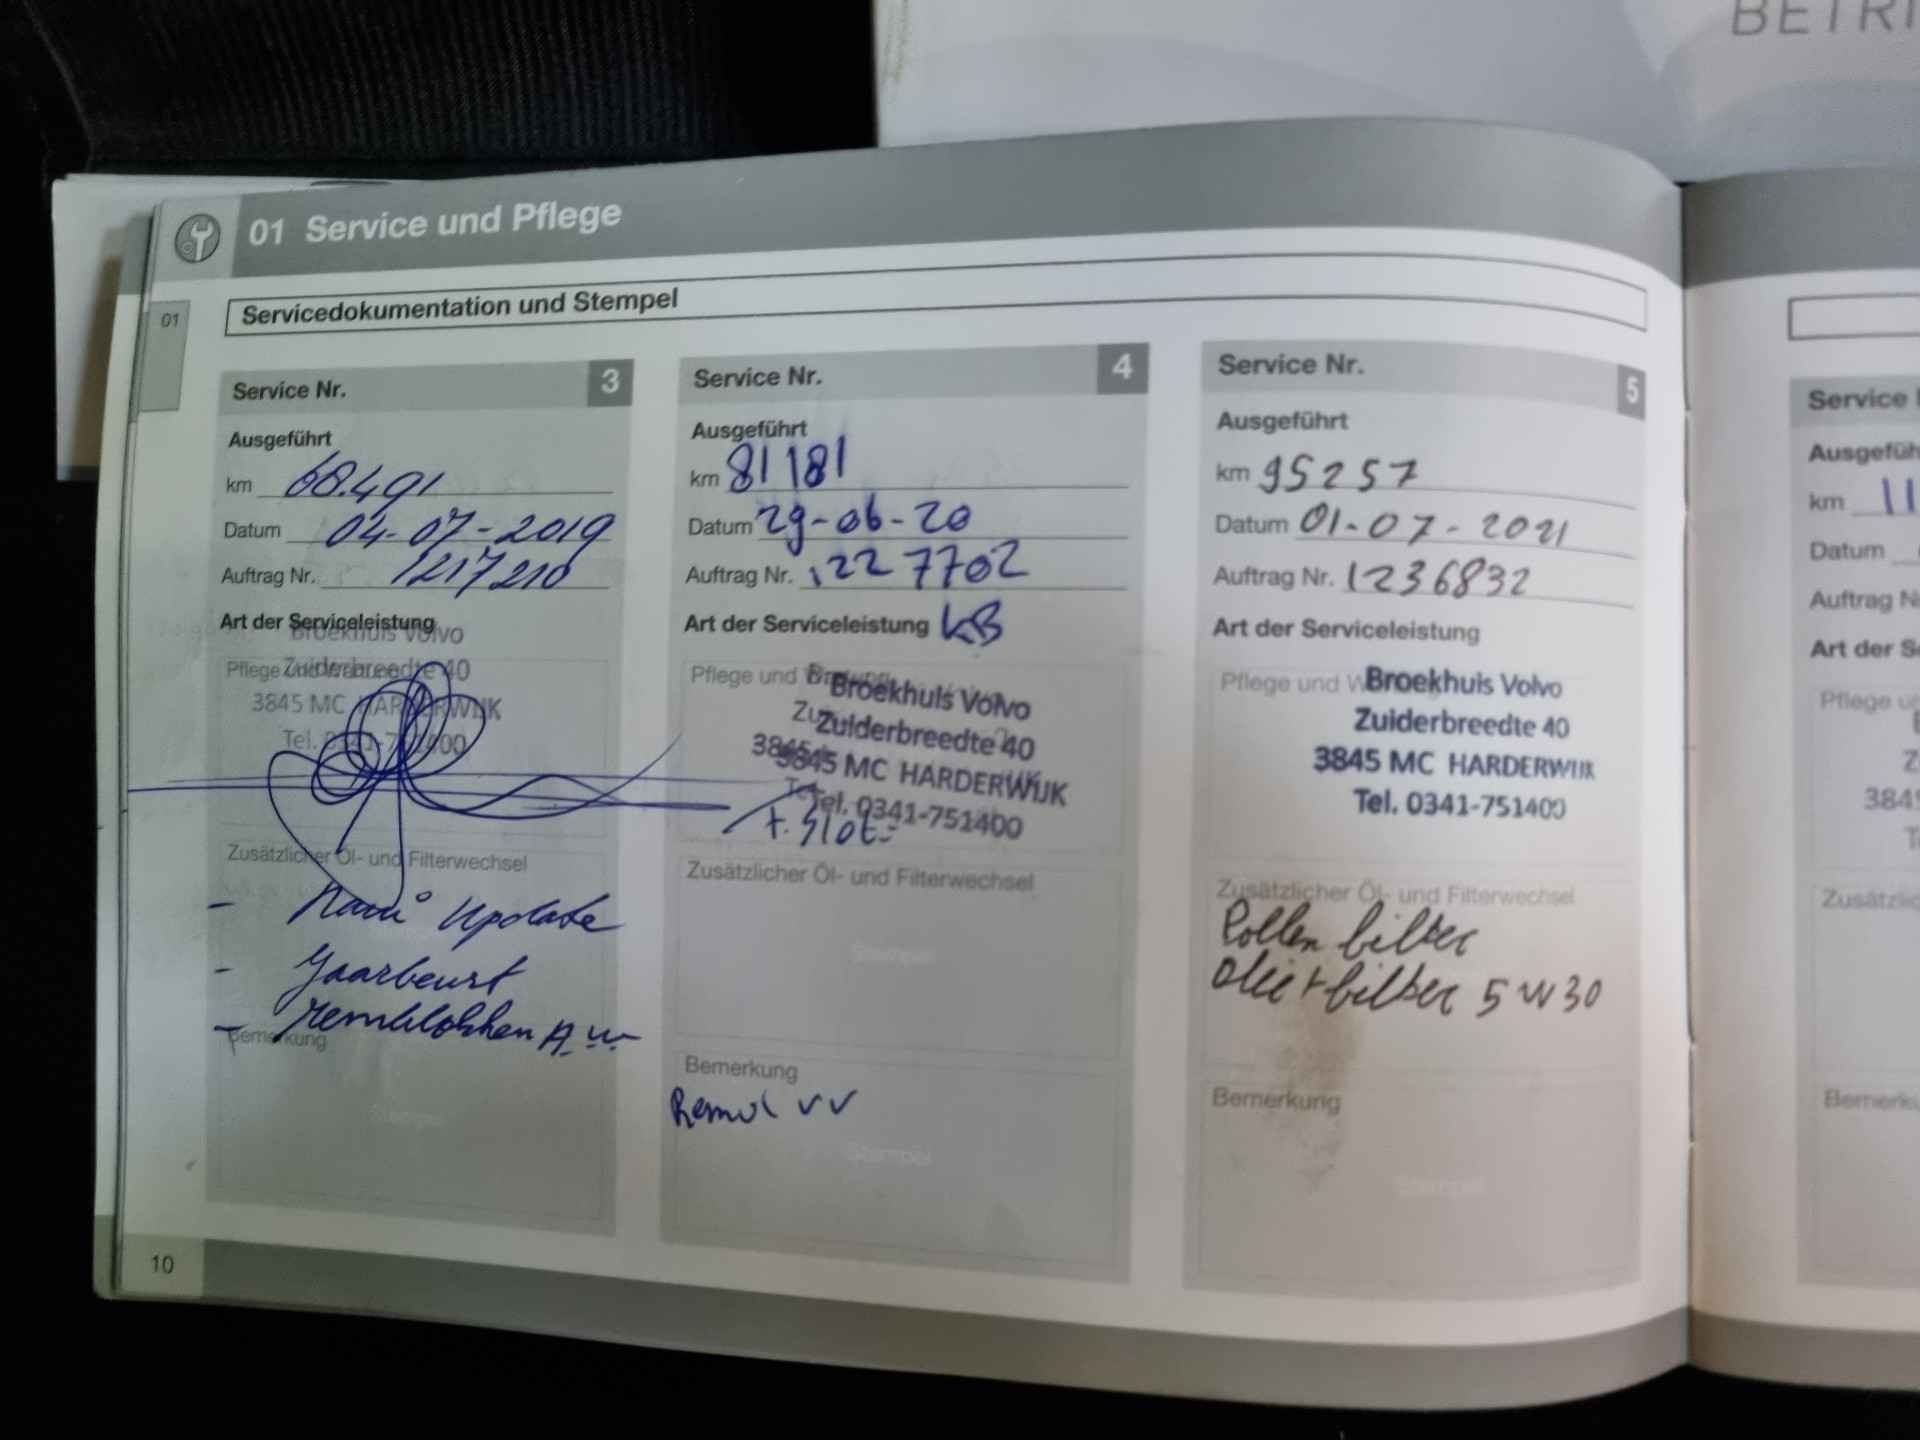 BETRI
01 Service und Pflege
01
Servicedokumentation und Stempel
Service Nr. 3
Ausgeführt
km 68.491
Datum 04-07-2019
Auftrag Nr. 1217210
Art der Serviceleistung
Broekhuis Volvo
Pflege Zuiderbreedte 40
3845 MC HARDERWIJK
Tel. 0341-751400
Zusätzlicher Öl- und Filterwechsel
- Navi Update
- Jaarbeurt
- Remblokken A.W.
Bemerkung
Stempel
10
Service Nr. 4
Ausgeführt
km 81181
Datum 29-06-20
Auftrag Nr. 1227702
Art der Serviceleistung KB
Pflege und
Broekhuis Volvo
Zuiderbreedte 40
3845 MC HARDERWIJK
Tel. 0341-751400
Zusätzlicher Öl- und Filterwechsel
Stempel
Bemerkung
Stempel
Service Nr. 5
Ausgeführt
km 95257
Datum 01-07-2021
Auftrag Nr. 1236832
Art der Serviceleistung
Pflege und
Broekhuis Volvo
Zuiderbreedte 40
3845 MC HARDERWIJK
Tel. 0341-751400
Zusätzlicher Öl- und Filterwechsel
Pollen filter
olie + filter 5W30
Bemerkung
Stempel
Service
Ausgefüh
km 11
Datum
Auftrag N
Art der S
Pflege u
3845
Zusätzlic
Bemerku